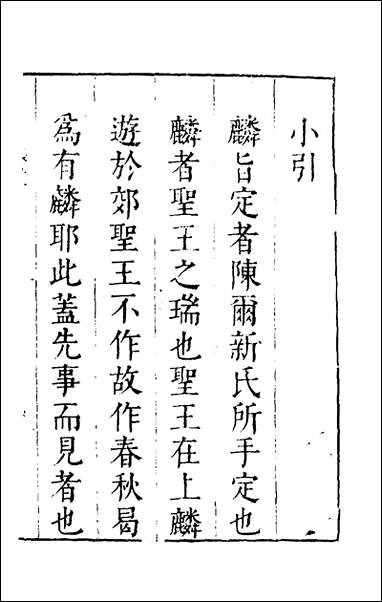 小引
麟旨定者陳爾新氏所手定也
麟者聖王之瑞也聖王在上麟
遊於郊聖王不作故作春秋曷
為有麟耶此蓋先事而見者也